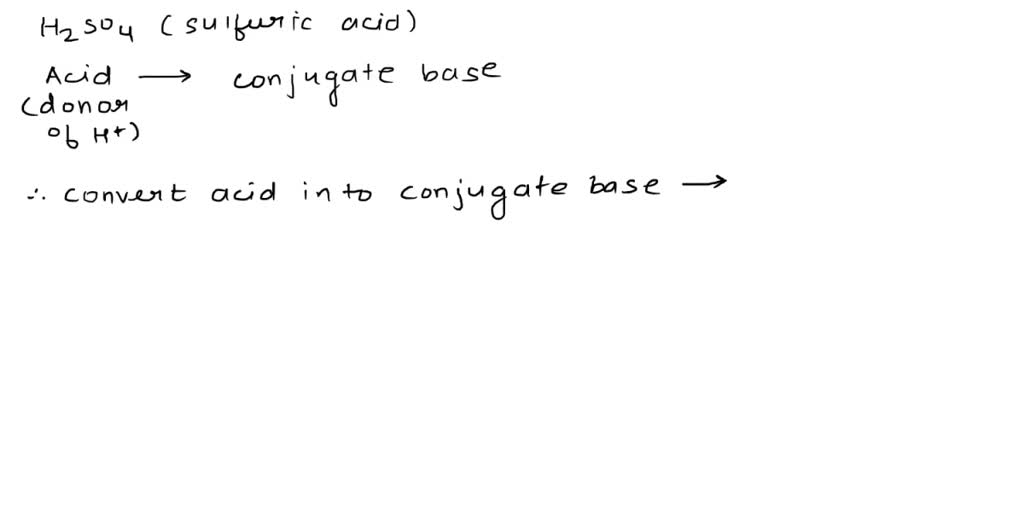 H2SO4 (sulfuric acid)
Acid → conjugate base
(donor
of H+)
∴ convert acid in to conjugate base →